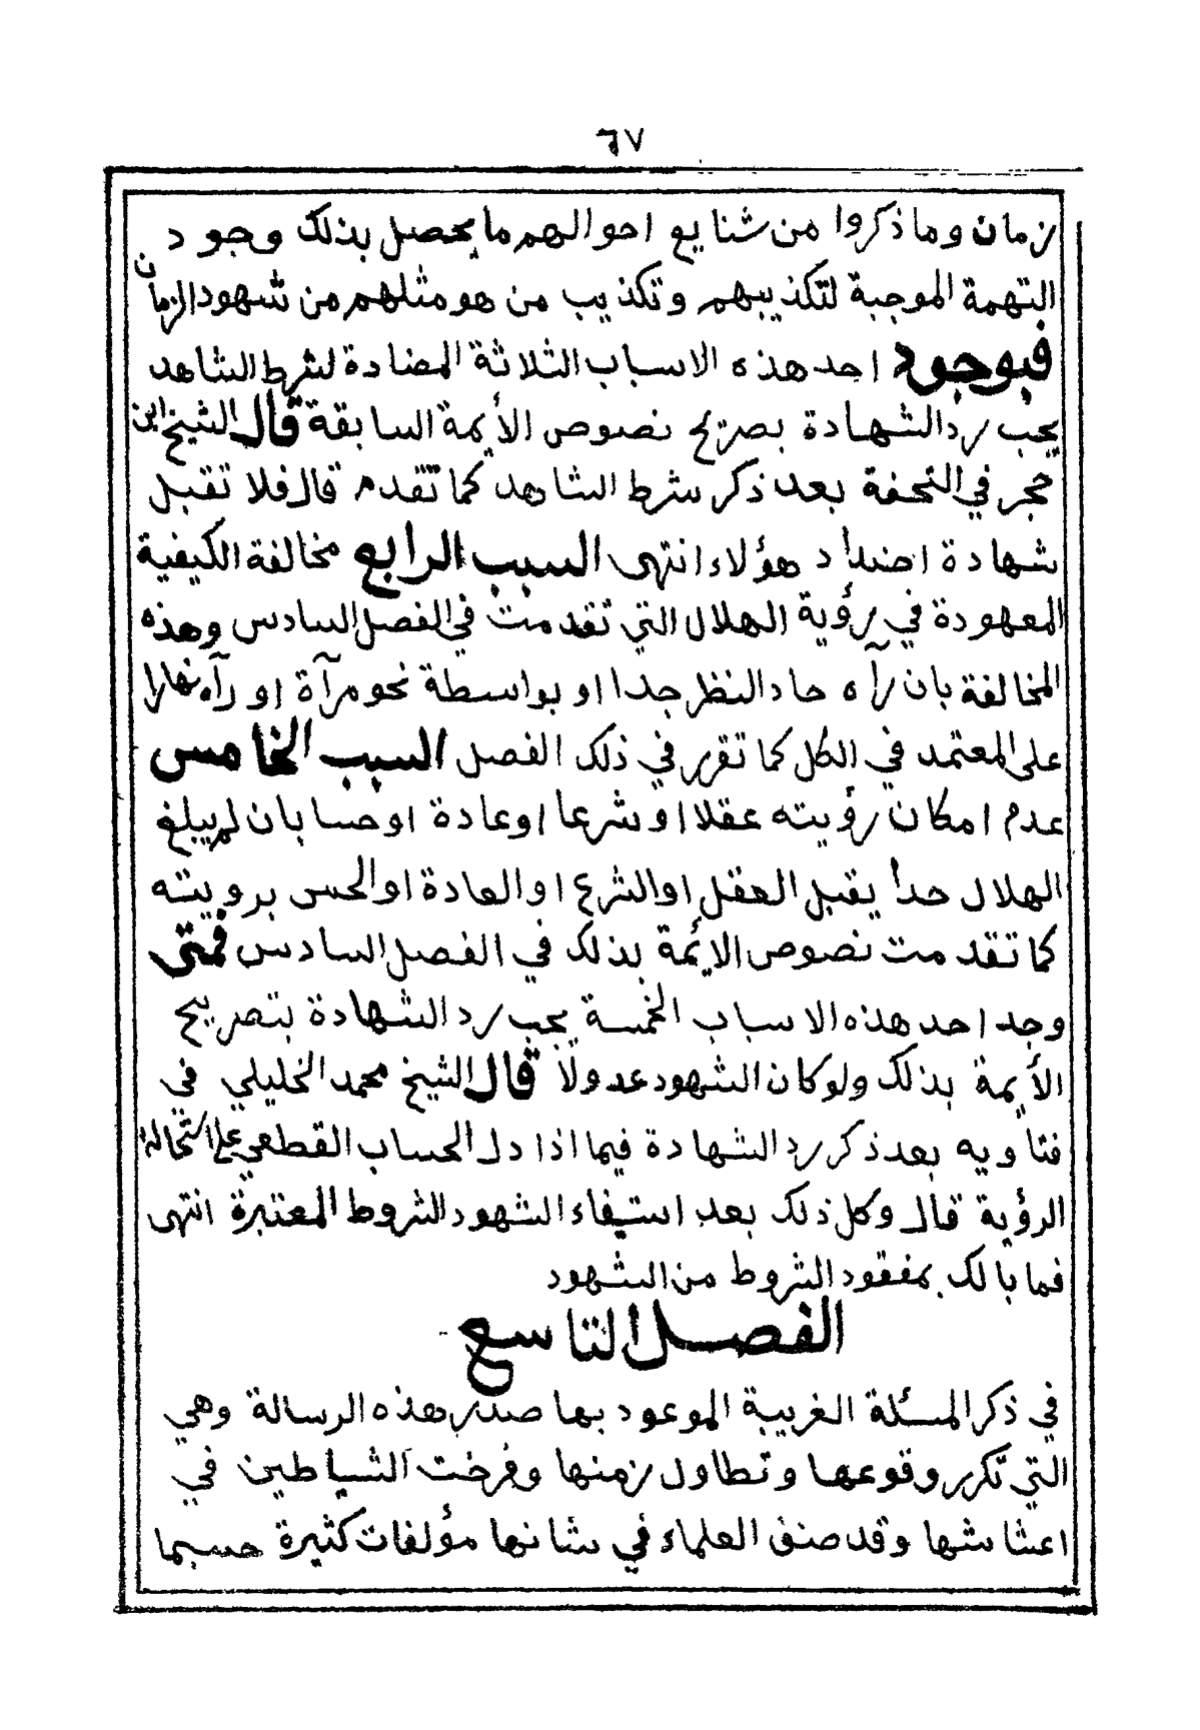 ٦٧
زمان وما ذكروا من شنايع احوالهم ما يحصل بذلك وجود
التهمة الموجبة لتكذيبهم وتكذيب من هو مثلهم من شهود الزمان
فبوجود احد هذه الاسباب الثلاثة المضادة لشرط الشاهد
يجب رد الشهادة بصريح نصوص الأيمة السابقة قال الشيخ ابن
حجر في التحفة بعد ذكر شرط الشاهد كما تقدم قال فلا تقبل
شهادة اضداد هؤلاء انتهى السبب الرابع مخالفة الكيفية
المعهودة في رؤية الهلال التي تقدمت في الفصل السادس وهذه
المخالفة بان رآه حاد النظر جدا او بواسطة نحو مرآة او رآه نهارا
على المعتمد في الكل كما تقرر في ذلك الفصل السبب الخامس
عدم امكان رؤيته عقلا او شرعا او عادة او حسا بان لم يبلغ
الهلال حدا يقبل العقل او الشرع او العادة او الحس برويته
كما تقدمت نصوص الايمة بذلك في الفصل السادس فمتى
وجد احد هذه الاسباب الخمسة يجب رد الشهادة بتصريح
الأيمة بذلك ولو كان الشهود عدولا قال الشيخ محمد الخليلي في
فتاويه بعد ذكر رد الشهادة فيما اذا دل الحساب القطعي على استحالة
الرؤية قال وكل ذلك بعد استيفاء الشهود الشروط المعتبرة انتهى
فما بالك بمفقود الشروط من الشهود
الفصل التاسع
في ذكر المسئلة الغريبة الموعود بها صدر هذه الرسالة وهي
التي تكرر وقوعها وتطاول زمنها وفرخت الشياطين في
اعشاشها وقد صنف العلماء في شانها مؤلفات كثيرة حسبما